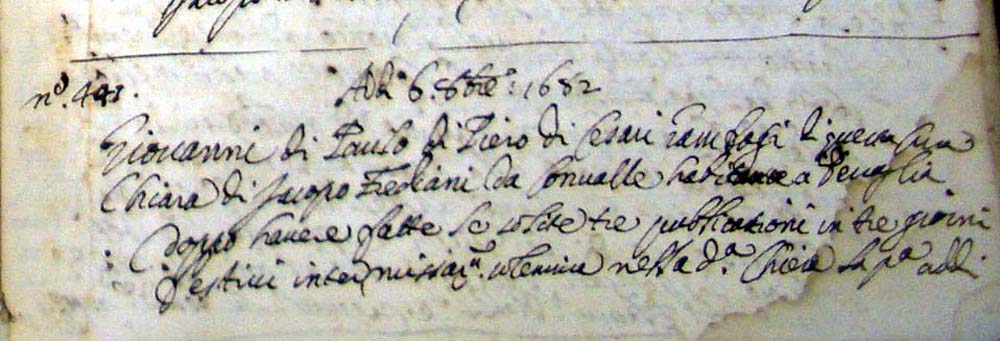 n.º 441. Adi 6. 8bre: 1682
Giovanni di Paulo di Piero di Cesari di questa Cura
Chiara di Jacopo Frediani da Convalle habitante a
doppo havere fatte le solite tre publicationi in tre giorni
festivi inter missar.m solemnia nella d.a Chiesa la p.a adi